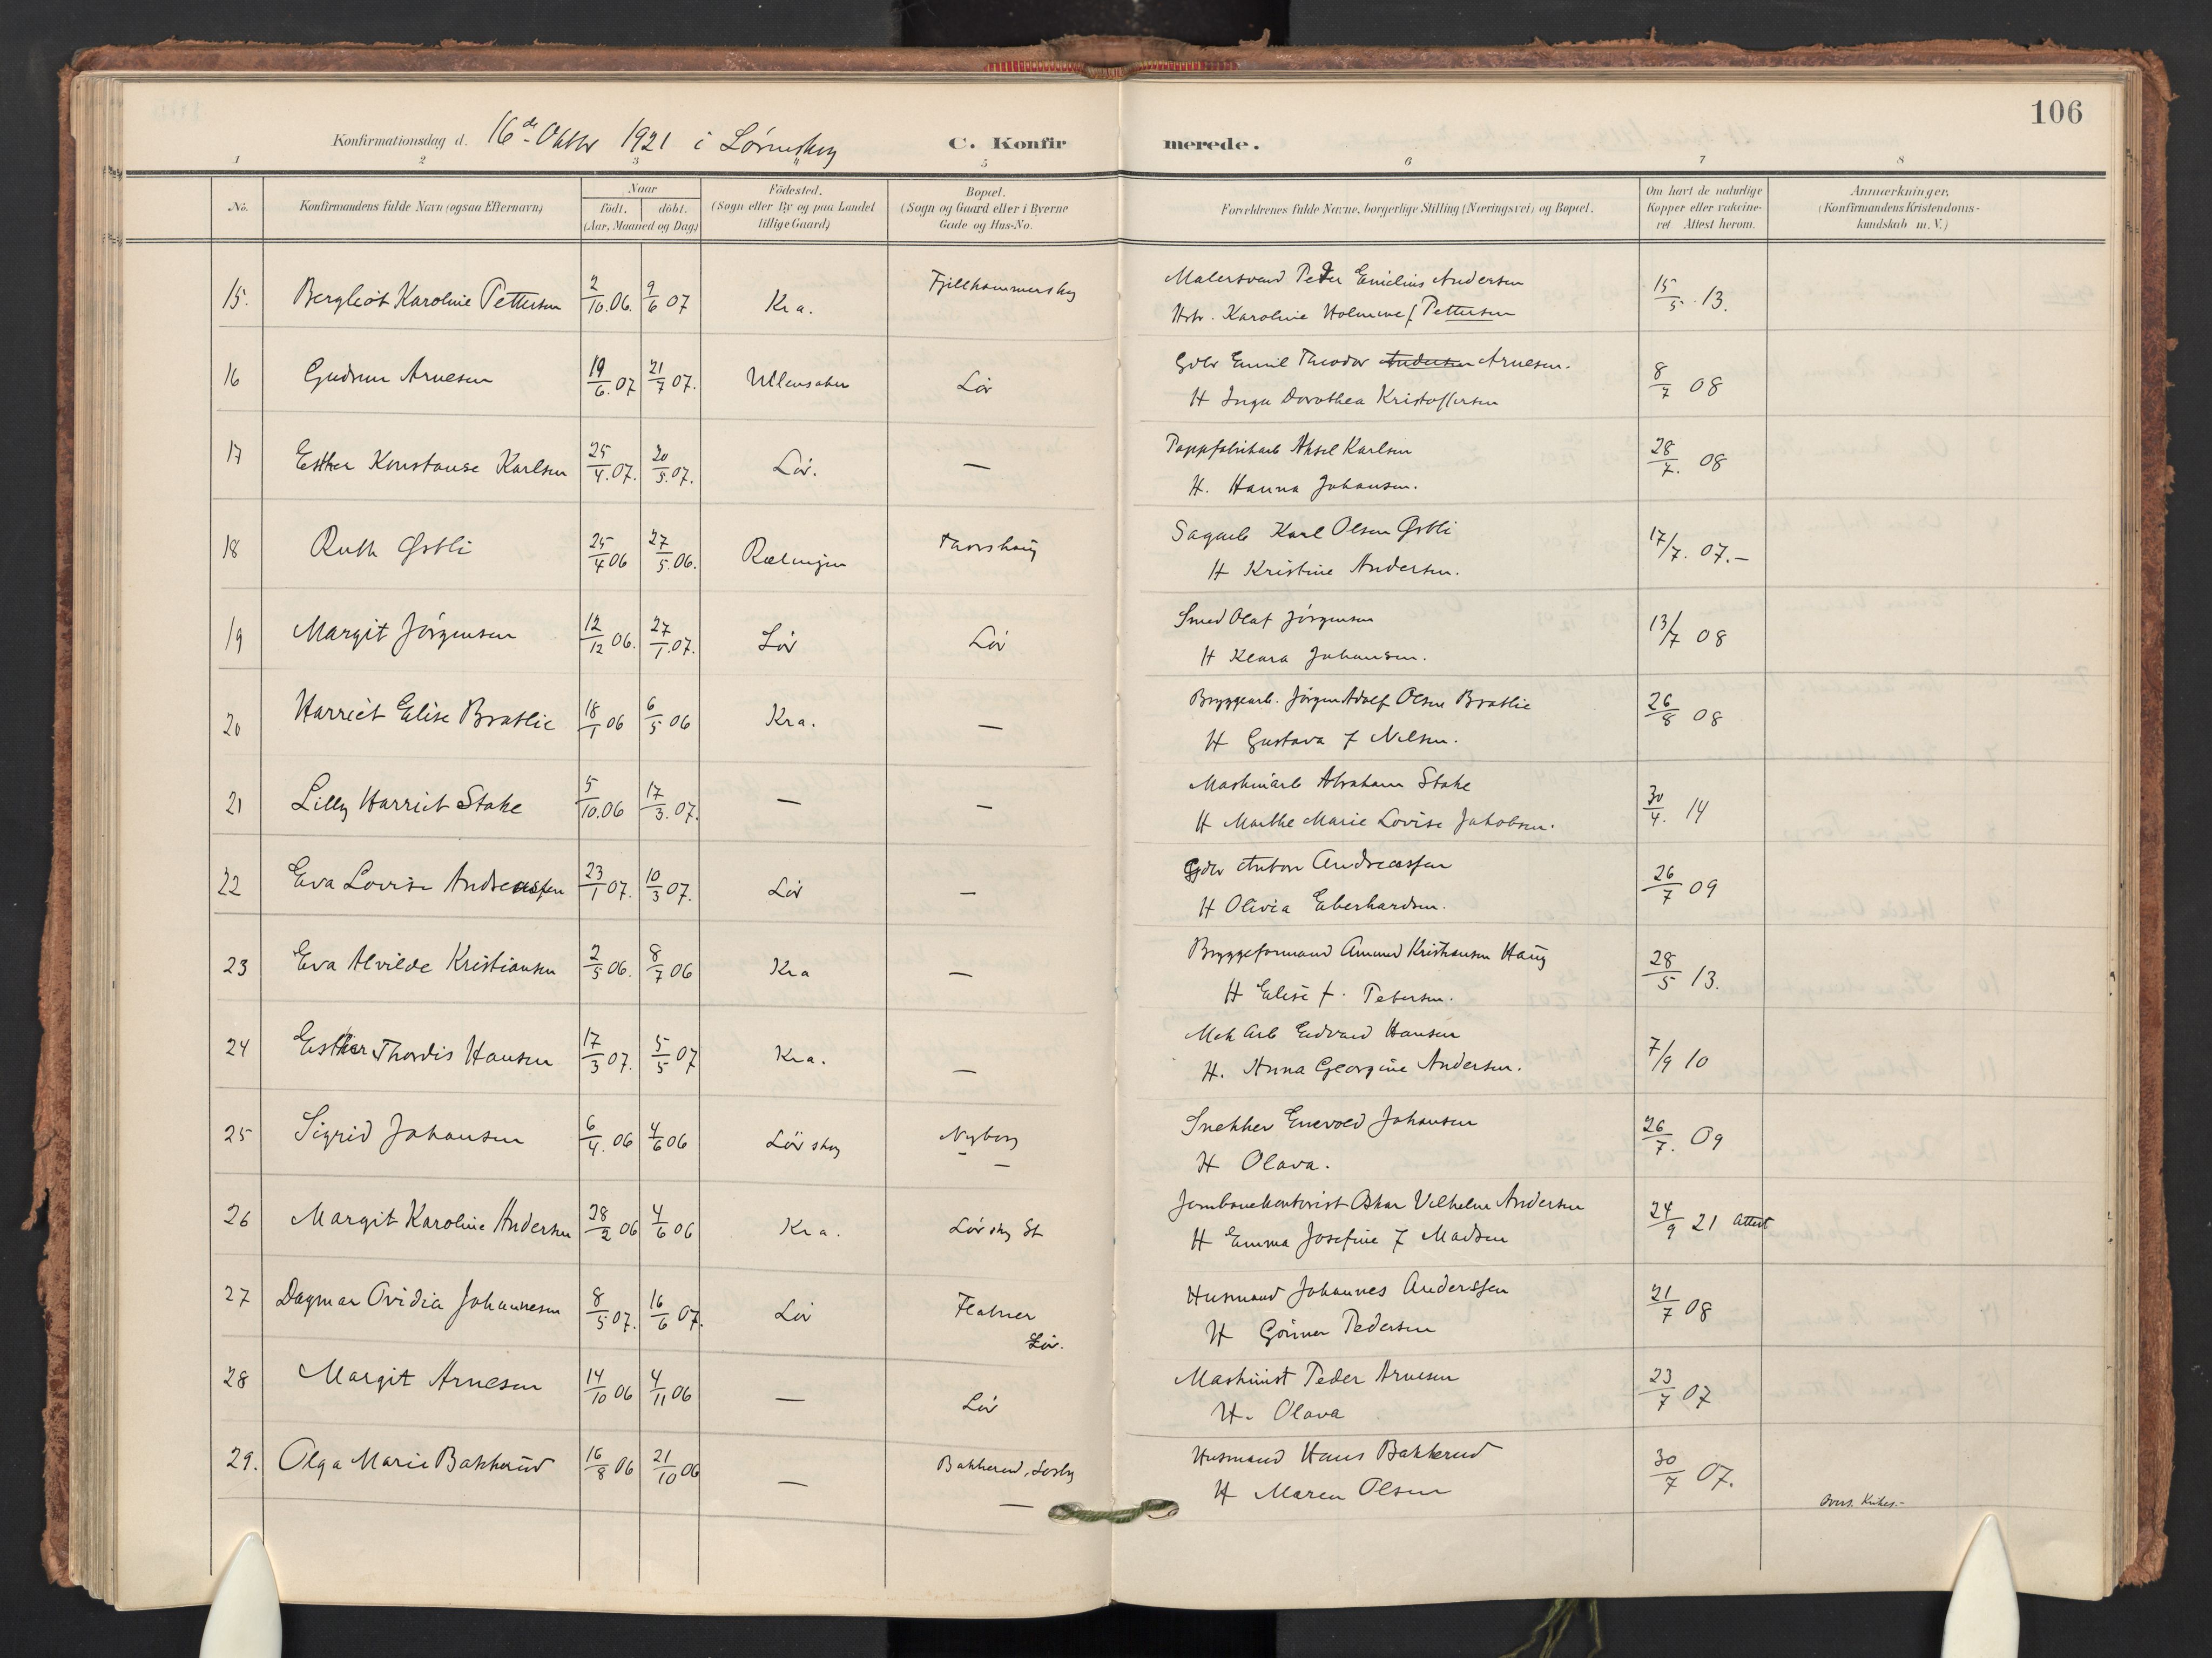 106
Konfirmationsdag d. 16de Oktbr 1921 i Lørenskog
C. Konfirmerede.
1 2 3 5 6 7 8
No.
Konfirmandens fulde Navn (ogsaa Efternavn)
Naar
födt. döbt.
(Aar, Maaned og Dag)
Födested.
(Sogn eller By og paa Landet
tillige Gaard)
Bopæl.
(Sogn og Gaard eller i Byerne
Gade og Hus-No.
Forældrenes fulde Navne, borgerlige Stilling (Næringsvei) og Bopæl.
Om havt de naturlige
Kopper eller vakcine-
ret Attest herom.
Anmærkninger.
(Konfirmandens Kristendoms-
kundskab m. V.)
15. Bergliot Karoline Pettersen 2/10.06. 9/6 07 Kra. Fjellhammerskog Malersvend Peder Emilius Andersen 15/5 13.
Hstr. Karoline Holmine f Pettersen
16 Gudrun Arnesen 19/6.07 21/7 07. Ullensaker Lör Gdbr Emil Theodor Andersen Arnesen. 8/7 08
H Inga Dorothea Kristoffersen
17 Esther Konstanse Karlsen 25/4.07. 20/5.07. Lör. — Pappfabrikarb Aksel Karlsen 28/7. 08
H. Hanna Johansen.
18 Ruth Østli 25/4 06 27/5.06. Rælingen Thorshaug Sagarb Karl Olsen Østli 17/7. 07.—
H Kristine Andersen.
19 Margit Jörgensen 12/12 06. 27/1.07. Lör Lör Smed Olaf Jörgensen 13/7 08
H Klara Johansen.
20 Harriet Elise Bratlie 18/1 06 6/5 06 Kra. — Bryggearb. Jörgen Adolf Olsen Bratlie 26/8 08
H Gustava f Nilsen.
21 Lilly Harriet Stake 5/10.06 17/3.07. — — Maskinarb Abraham Stake 30/4. 14
H Marthe Marie Lovise Jakobsen.
22 Eva Lovise Andreassen 23/1 07. 10/3 07. Lör — Gdbr Anton Andreassen 26/7 09
H Olivia Eberhardsen.
23 Eva Alvilde Kristiansen 2/5 06. 8/7 06 Kra — Bryggeformand Amund Kristiansen Haug 28/5 13.
H Elise f. Petersen.
24 Esther Thordis Hansen 17/3 07. 5/5 07 Kra. — Mek Arb Edvard Hansen 7/9 10
H. Anna Georgine Andersen.
25 Sigrid Johansen 6/4. 06 4/6 06 Lörskog Nyborg — Snekker Enevold Johansen 26/7. 09
H Olava.
26 Margit Karoline Andersen 28/2 06 4/6 06 Kra. Lörskog St Jernbanekontorist Oskar Vilhelm Andersen 24/9 21 Attest
H Emma Josefine f Madsen
27 Dagmar Ovidia Johannesen 8/5 07. 16/6 07. Lör Flatner Lör. Husmand Johannes Anderssen 21/7 08
H Gunner Pedersen
28 Margit Arnesen 14/10 06 4/11 06 — Lör Maskinist Peder Arnesen 23/7 07
H. Olava
29. Olga Marie Bakkerud 16/8 06 21/10 06 — Bakkerud, Losby — Husmand Hans Bakkerud 30/7 07.
H Maren Olsen